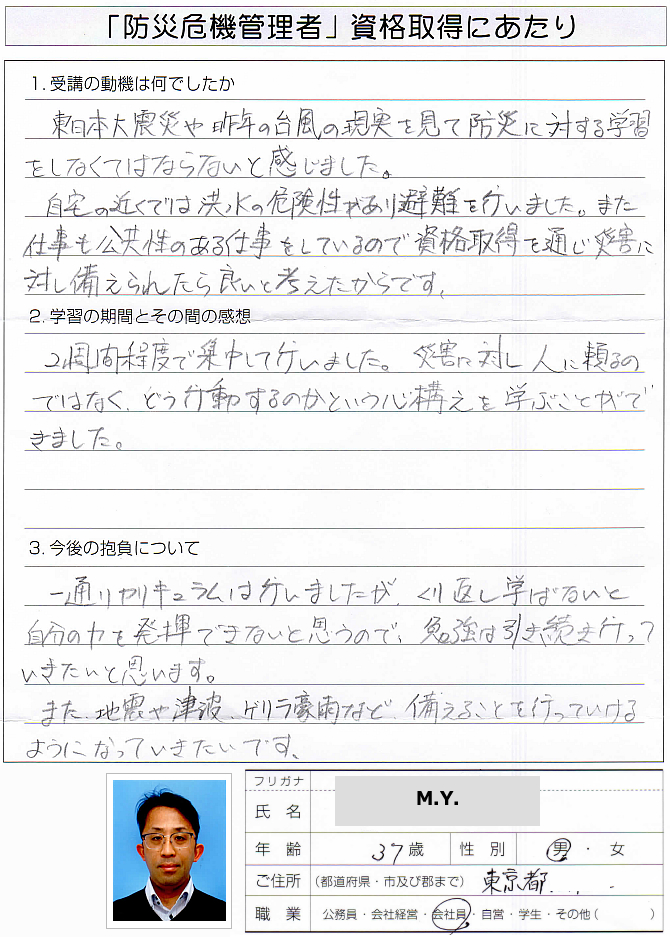 「防災危機管理者」資格取得にあたり
1. 受講の動機は何でしたか
東日本大震災や昨年の台風の現実を見て防災に対する学習
をしなくてはならないと感じました。
自宅の近くでは洪水の危険性があり避難を行いました。また
仕事も公共性のある仕事をしているので資格取得を通じ災害に
対し備えられたら良いと考えたからです。
2. 学習の期間とその間の感想
2週間程度で集中して行いました。災害に対し人に頼るの
ではなく、どう行動するのかという心構えを学ぶことがで
きました。
3. 今後の抱負について
一通りカリキュラムは行いましたが、くり返し学ばないと
自分の力を発揮できないと思うので、勉強は引き続き行って
いきたいと思います。
また、地震や津波、ゲリラ豪雨など、備えることを行っていける
ようになっていきたいです。
フリガナ
氏 名 M.Y.
年 齢 37歳 性 別 男 ・ 女
ご住所 (都道府県・市及び郡まで) 東京都
職 業 公務員・会社経営・会社員・自営・学生・その他( )